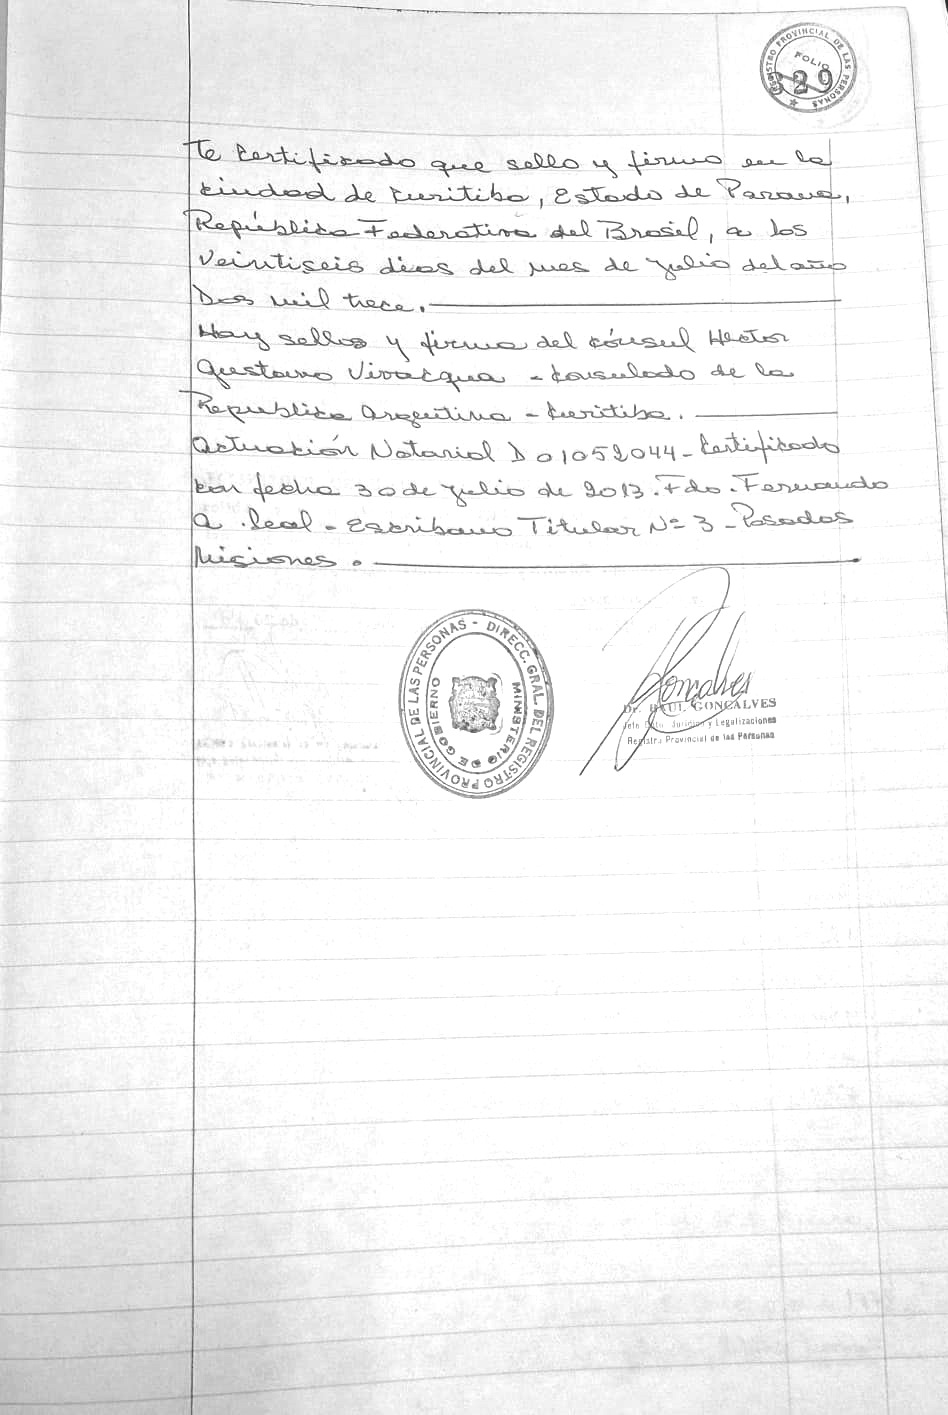 REGISTRO PROVINCIAL DE LAS PERSONAS
FOLIO
329
Te Certificado que sello y firmo en la
Ciudad de Curitiba, Estado de Parana,
República Federativa del Brasil, a los
Veintiseis dias del mes de Julio del año
Dos mil trece.
Hay sellos y firma del Cónsul Hector
Gustavo Vivacqua - Consulado de la
Republica Argentina - Curitiba.
Actuación Notarial D 01052044 - Certificado
con fecha 30 de Julio de 2013. Fdo. Fernando
A. Leal - Escribano Titular Nº 3 - Posadas
Misiones.
DIRECC. GRAL. DEL REGISTRO PROVINCIAL DE LAS PERSONAS -
MINISTERIO DE GOBIERNO
Goncalves
Dr. RAUL GONCALVES
Jefe Dpto. Jurídico y Legalizaciones
Registro Provincial de las Personas